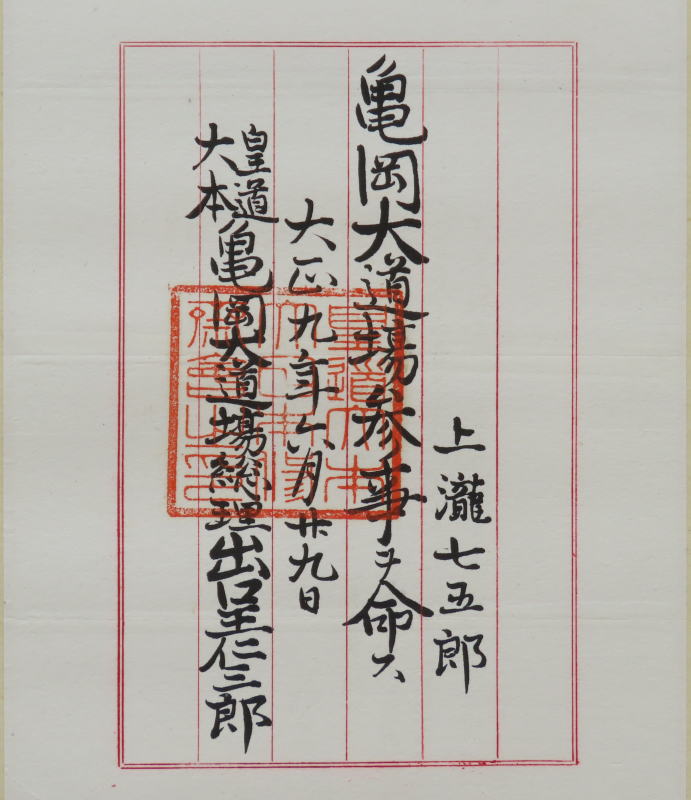 上瀧七五郎
亀岡大道場参事ヲ命ス
大正九年六月廿九日
皇道大本亀岡大道場総理出口王仁三郎